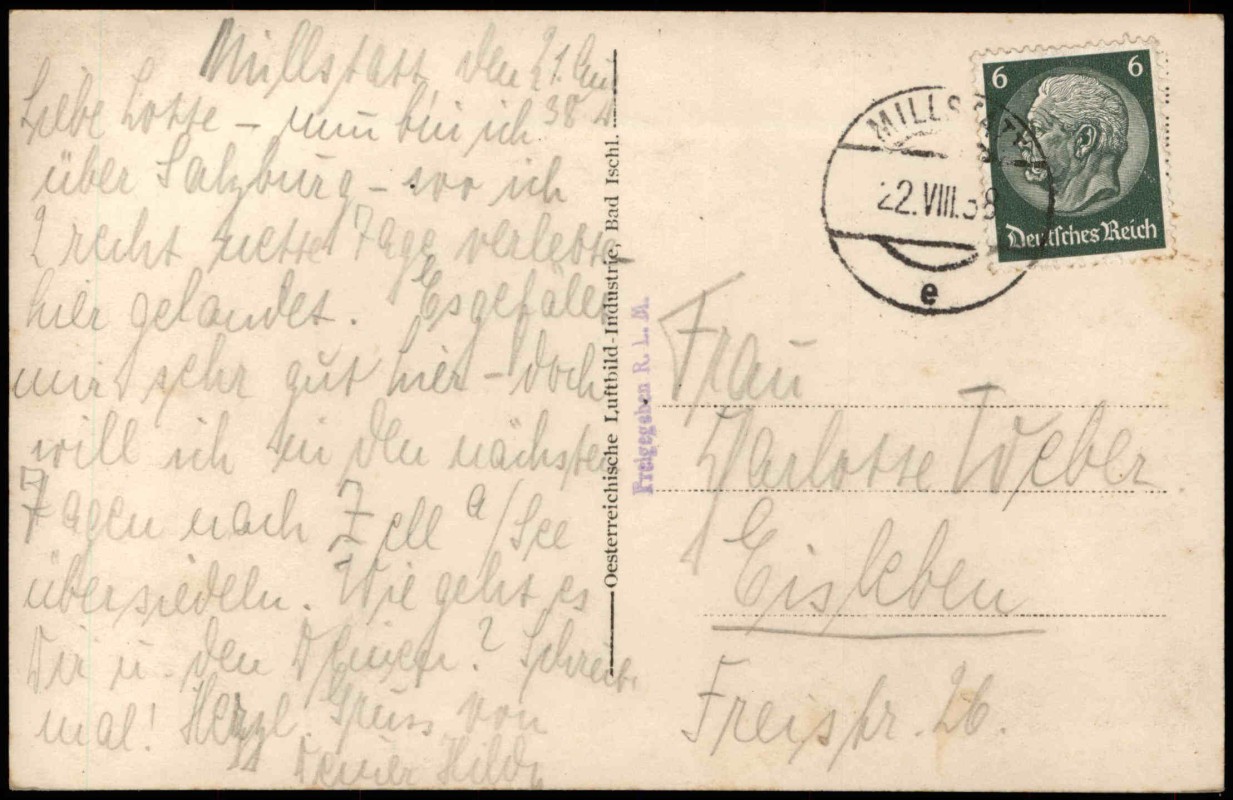 Millstatt, den 21. Aug.
38
Liebe Lotte – nun bin ich
über Salzburg – wo ich
2 recht nette Tage verlebte
hier gelandet. Es gefällt
mir sehr gut hier – doch
will ich in den nächsten
Tagen nach Zell a/See
übersiedeln. Wie geht es
Dir u. den Deinen? Schreib
mal! Herzl. Gruss von
Deiner Hilde
Oesterreichische Luftbild-Industrie, Bad Ischl.
Freigegeben R. L. M.
MILLSTATT
22.VIII.38
e
6 6
Deutsches Reich
Frau
Charlotte Weber
Eisleben
Freistr. 26.